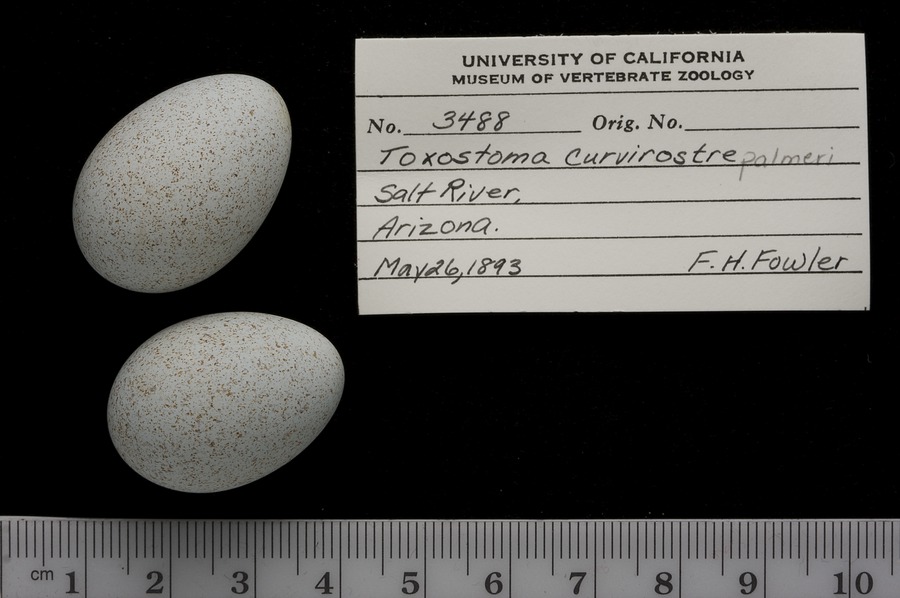 UNIVERSITY OF CALIFORNIA
MUSEUM OF VERTEBRATE ZOOLOGY
No. 3488 Orig. No.
Toxostoma curvirostre palmeri
Salt River,
Arizona.
May 26, 1893 F. H. Fowler
cm 1 2 3 4 5 6 7 8 9 10